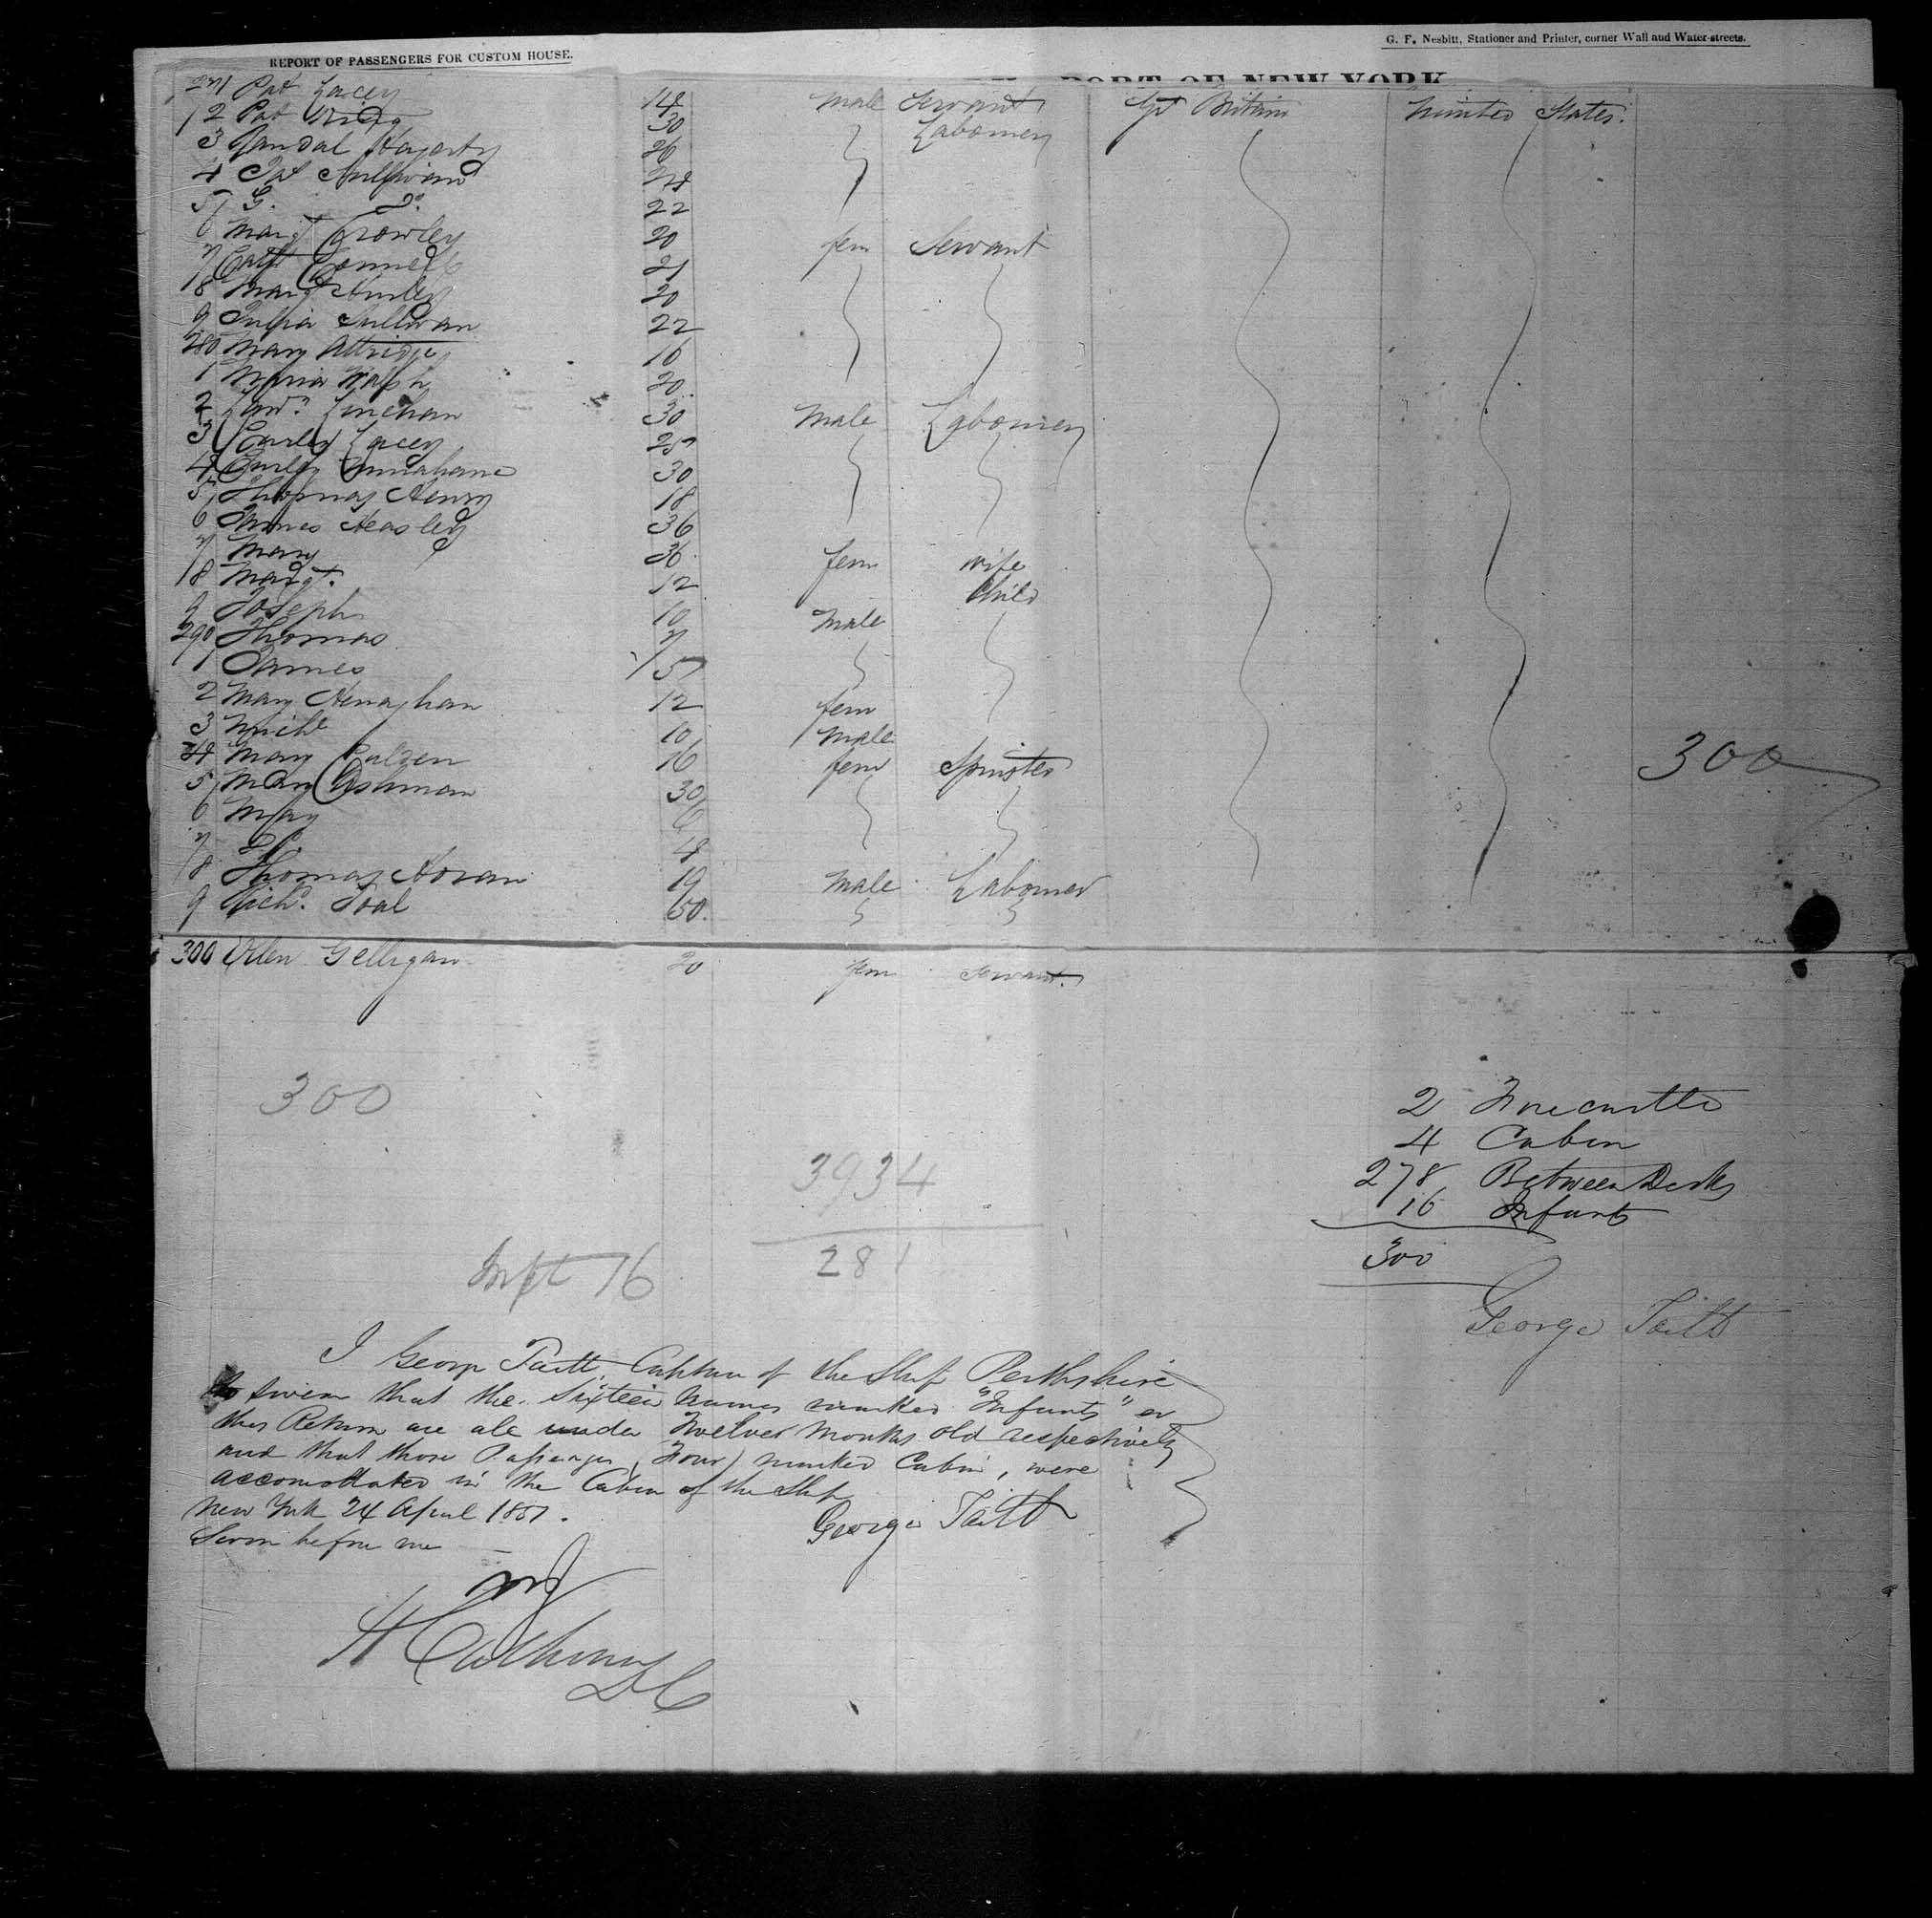 REPORT OF PASSENGERS FOR CUSTOM HOUSE.
G. F. Nesbitt, Stationer and Printer, corner Wall and Water-streets.
PORT OF NEW YORK
271 Pat Lacey 14 male Servant Gt Britain United States.
2 Pat 30 Labourer
3 Randal Hagarty 26
4 Pat Sullivan 24
5 G. Do. 22
6 Margt Crowley 20 fem Servant
7 Cath Connell 21
8 Margt Hurley 20
9 Julia Sullivan 22
280 Mary Attridge 16
1 Maria Walsh 20
2 Linehan 30 male Labourer
3 Lacey 25
4 30
5 Thomas Henry 18
6 James Heasley 36
7 Mary 36 fem wife
8 Margt. 12 child
9 Joseph 10 male
290 Thomas 7
1 James 5
2 Mary Henaghan 12 fem
3 Michl 10 male
4 Mary 16 fem Spinster 300
5 Mary Cashman 30
6 May 6
7 Do. 4
8 Thomas Horan 19 male Labourer
9 Richd. Toal 50.
300 Ellen Gelligan 20 fem Servant.
300
2 Forecastle
4 Cabin
278 Between Decks
16 Infants
300
3934
281
Inft 16
George Taitt
I George Taitt, Captain of the Ship Perthshire
do swear that the Sixteen names marked "Infants" on
this Return are all under Twelve Months old respectively
and that those Passengers (Four) marked Cabin, were
accomodated in the Cabin of the Ship
New York 24 April 1851.
George Taitt
Sworn before me